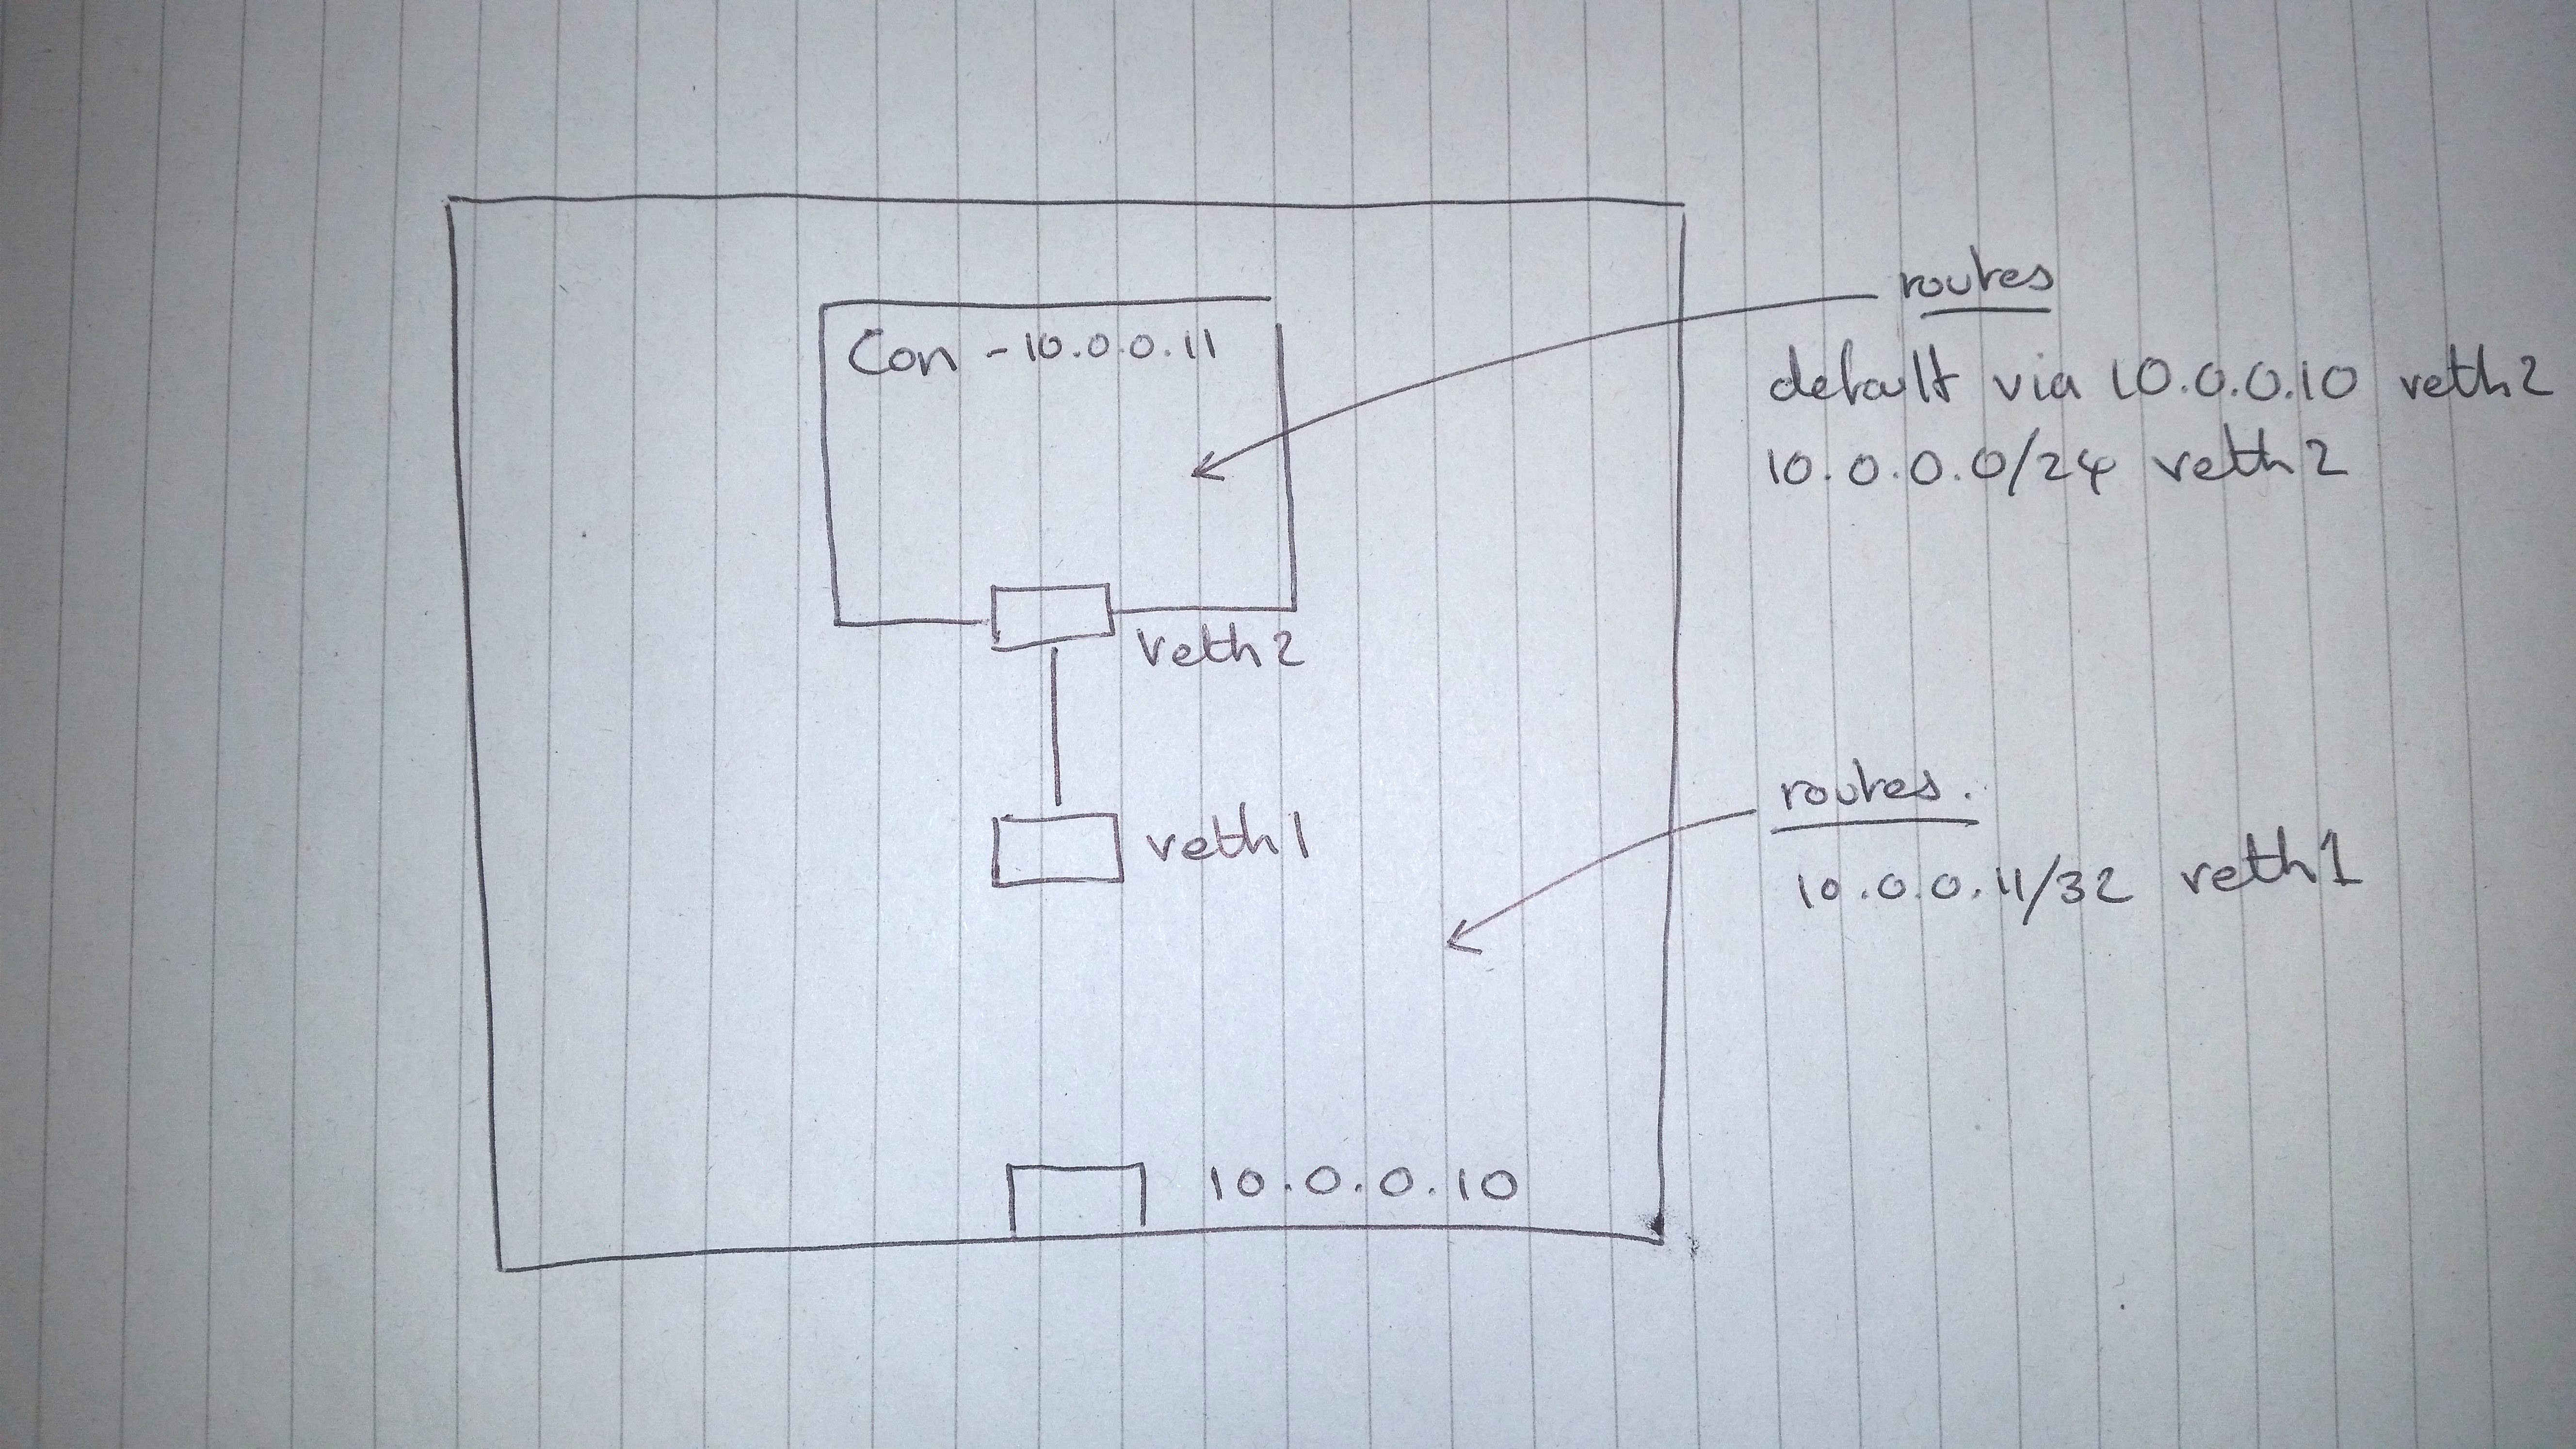 Con - 10.0.0.11
veth2
veth1
10.0.0.10
routes
default via 10.0.0.10 veth2
10.0.0.0/24 veth2
routes.
10.0.0.11/32 veth1